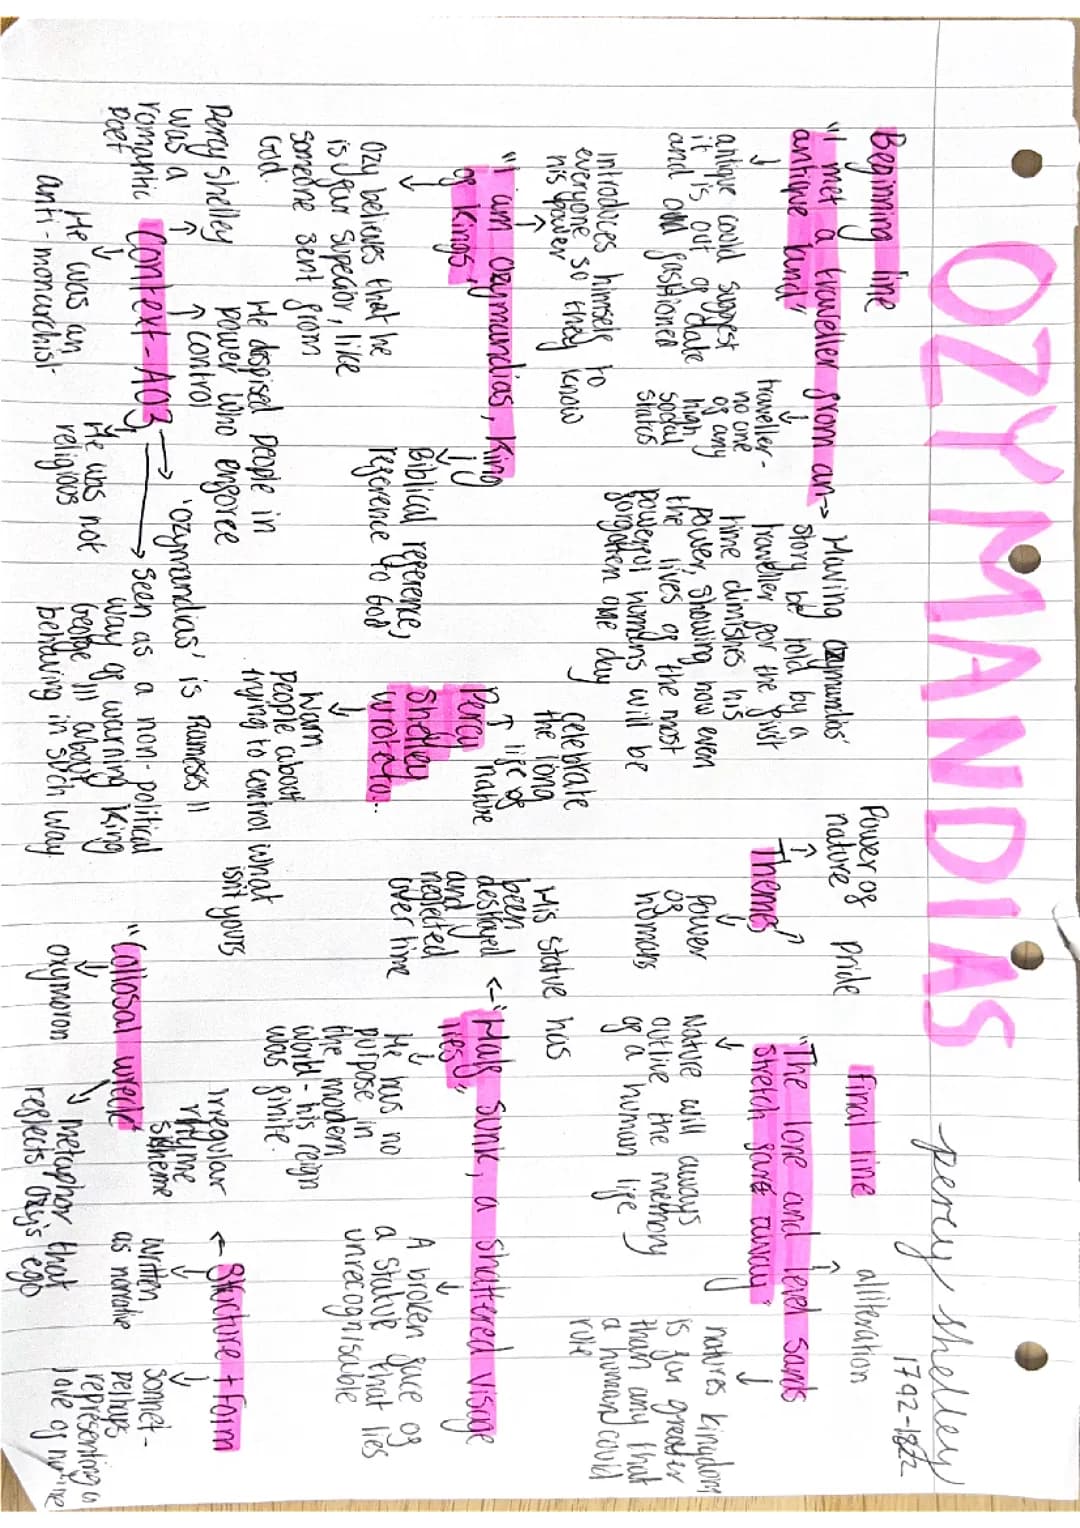 OZYMANDIAS
percy shelley
1792-1822
Beginning line
"I met a traveller from an
antique land"
antique could suggest
it is out of date
and old fastioned
traveller -
no one
of any
high
social
status
Having ozymandias'
story be told by a
traveller for the first
time dimishes his
power, showing how even
the lives of the most
powerful humans will be
forgotten one day
introduces himself to
everyone so they know
his power
"I am ozymandias, King
of Kings"
Ozy believes that he
is far superior, like
someone sent from
God.
Biblical reference,
reference to God
Themes
Power of
nature
Pride
power
of
humans
Final line
alliteration
"The lone and level sands
stretch far away"
Nature will always
outlive the memory
of a human life
natures kingdom
is far greater
than any that
a human could
rule
celebrate
the long
life of
nature
Percy
Shelley
wrote to...
Warn
people about
trying to control what
isn't yours
His statue has
been
destroyed
and
neglected
over time
"Half sunk, a shattered visage
lies"
He has no
purpose in
the modern
world - his reign
was finite.
A broken face of
a statue that lies
unrecognisable
Context - AO3
Percy shelley
was a
romantic
poet
He despised people in
power who enforce
control
He was an
anti-monarchist-
He was not
religious
'Ozymandias' is Rameses II
Seen as a non-political
way of warning King
George III about
behaving in such way
"Collosal wreck"
oxymoron
metaphor that
reglects Ozy's ego
Structure + Form
irregular
rhyme
scheme
written
as narrative
Sonnet -
perhaps
representing a
love of nature